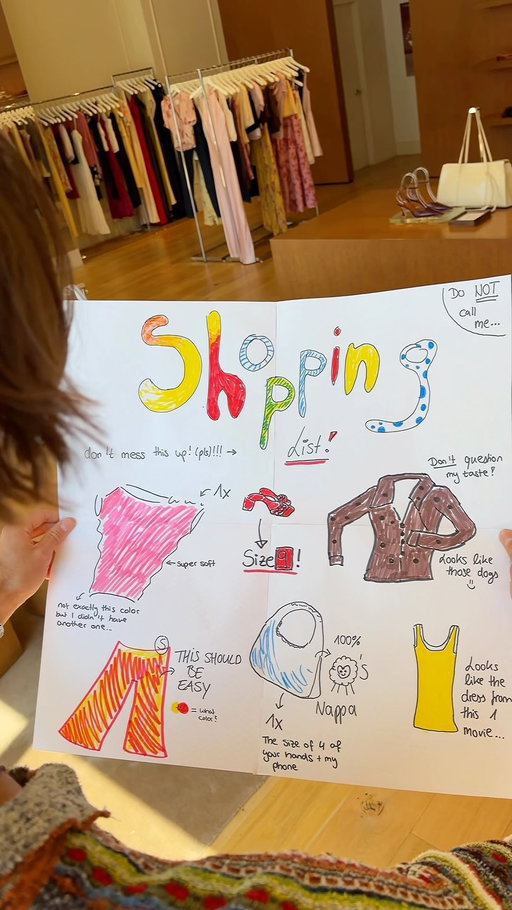 Do NOT
call
me...
Shopping
List!
don't mess this up! (pls)!!! →
Don't question
my taste!
1x
super soft
Size
!
Looks like
those dogs
not exactly this color
but I didn't have
another one...
S
THIS SHOULD
BE
EASY
= what
color?
100%
's
Nappa
1x
The size of 4 of
your hands + my
phone
Looks
like the
dress from
this 1
movie...